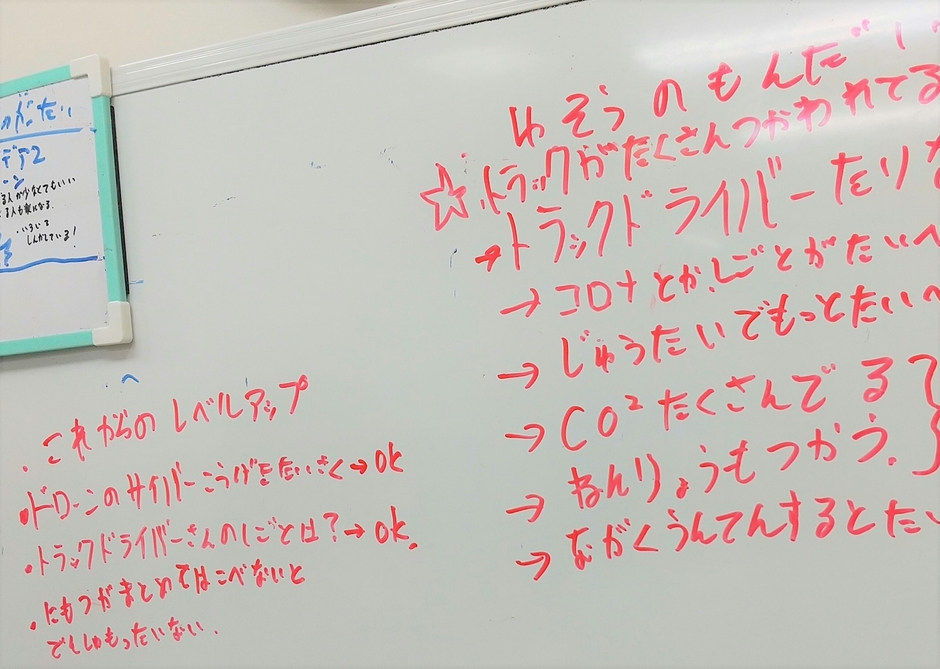 がたい
デア2
ーン
る人が少なくてもいい
る人も楽になる.
・いろいろ
しんかしている!
ゆそうのもんだい
☆.トラックがたくさんつかわれてる
→トラックドライバーたりな
→コロナとか、しごとがたいへ
→じゅうたいでもっとたいへ
→CO²たくさんでる
→ねんりょうもつかう.
→ながくうんてんするとたい
・これからのレベルアップ
・ドローンのサイバーこうげきたいさく→OK
・トラックドライバーさんのしごとは?→OK.
・にもつがまとめてはこべないと
でんしもったいない.